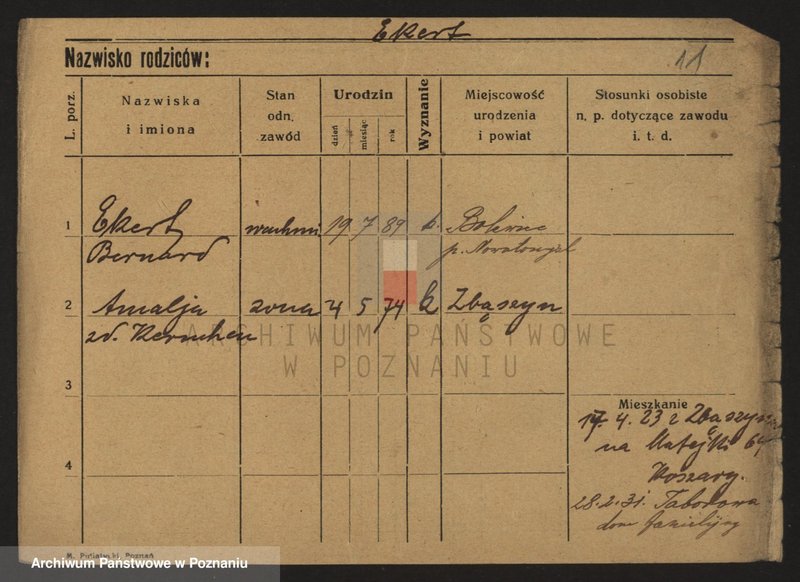 Ekert
Nazwisko rodziców:
11
L. porz.
Nazwiska
i imiona
Stan
odn.
zawód
Urodzin
dzień
miesiąc
rok
Wyznanie
Miejscowość
urodzenia
i powiat
Stosunki osobiste
n. p. dotyczące zawodu
i. t. d.
1
Ekert
Bernard
19 7 89
2
Amalja
zd.
żona 4 5 74 k Zbąszyn
ARCHIWUM PAŃSTWOWE
W POZNANIU
3
4
Mieszkanie
17. 4. 23 z Zbąszyn
na Matejki
Koszary.
28.2.31.
dom
M. Putiatycki, Poznań
Archiwum Państwowe w Poznaniu